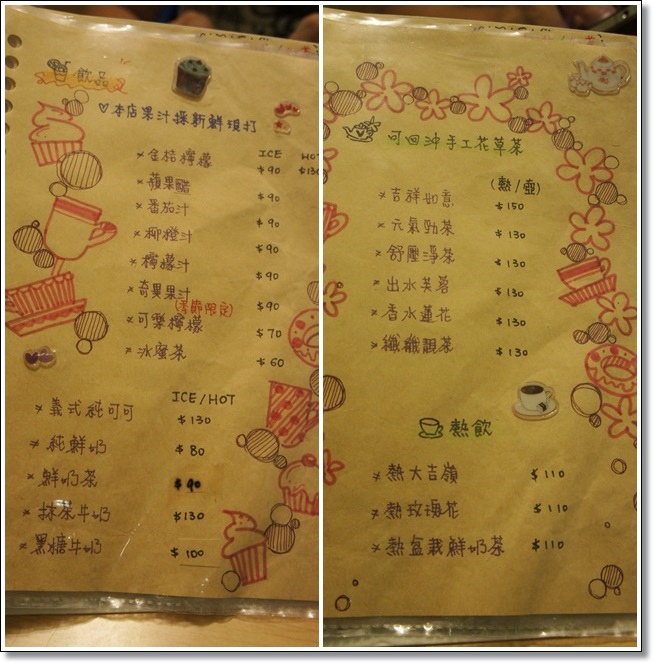 飲品
♡本店果汁採新鮮現打
ICE HOT
×金桔檸檬 $90 $130
×蘋果醋 $90
×番茄汁 $90
×柳橙汁 $90
×檸檬汁 $90
×奇異果汁 $90
(季節限定)
×可樂檸檬 $70
×冰蜜茶 $60
ICE/HOT
×義式純可可 $130
×純鮮奶 $80
×鮮奶茶 $90
×抹茶牛奶 $130
×黑糖牛奶 $100
可回沖手工花草茶
(熱/壺)
×吉祥如意 $150
×元氣勁茶 $130
×舒壓淨茶 $130
×出水芙蓉 $130
×香水蓮花 $130
×纖纖靚茶 $130
熱飲
×熱大吉嶺 $110
×熱玫瑰花 $110
×熱盆栽鮮奶茶 $110